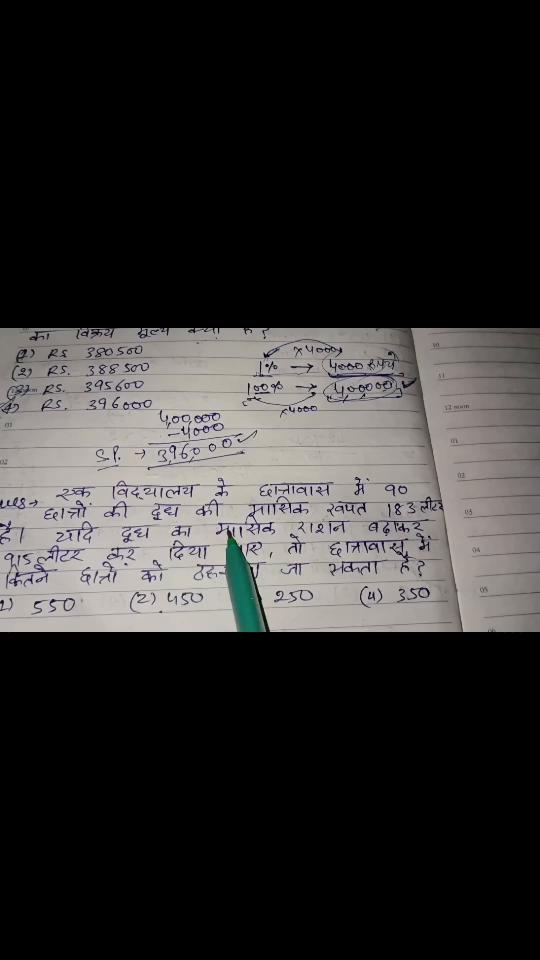 का विक्रय मूल्य क्या है?
(1) RS. 380500
(2) RS. 388500
(3) RS. 395600
(4) RS. 396000
×4000
1% → 4000 रुपये
100% → 400000
×4000
4,00,000
-4000
S.P. → 3,96,000
एक विद्यालय के छात्रावास में 90
छात्रों की दूध की मासिक खपत 183 लीटर
है। यदि दूध का मासिक राशन बढ़ाकर
915 लीटर कर दिया जाए, तो छात्रावास में
कितने छात्रों को जा सकता है?
1) 550 (2) 450 250 (4) 350
10
11
12 noon
01
02
03
04
05
06
01
02